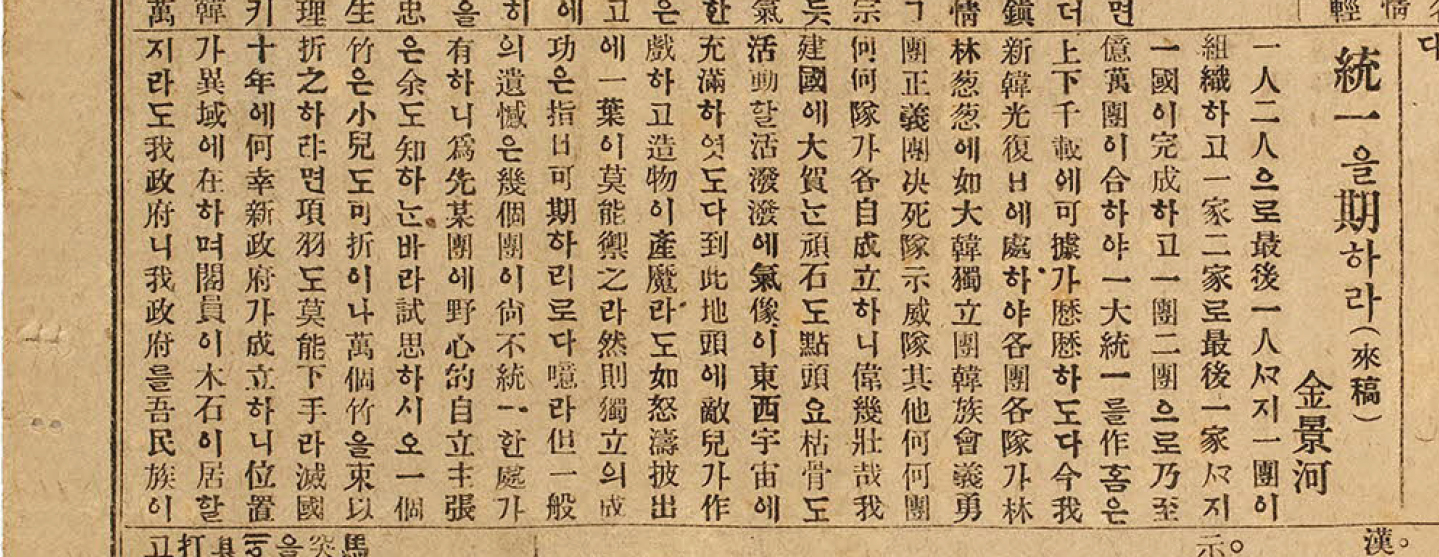 輕 情
면
더
鎭
情
宗
듯
氣
한
은
고
에
히
을
忠
生
理
키
韓
萬
대
統一을期하라(來稿)
金景河
一人二人으로最後一人ᄭᅡ지一團이
組織하고一家二家로最後一家ᄭᅡ지
一國이完成하고一團二團으로乃至
億萬團이合하야一大統一를作홈은
上下千載에可據가歷歷하도다今我
新韓光復日에處하야各團各隊가林
林葱葱에如大韓獨立團韓族會義勇
團正義團决死隊示威隊其他何何團
何何隊가各自成立하니偉幾壯哉我
建國에大賀는頑石도點頭요枯骨도
活動할活潑潑에氣像이東西宇宙에
充滿하엿도다到此地頭에敵兒가作
戲하고造物이産魔라도如怒濤披出
에一葉이莫能禦之라然則獨立의成
功은指日可期하리로다噫라但一般
의遺憾은幾個團이尙不統一한處가
有하니爲先某團에野心的自立主張
은余도知하는바라試思하시오一個
竹은小兒도可折이나萬個竹을束以
折之하랴면項羽도莫能下手라滅國
十年에何幸新政府가成立하니位置
가異域에在하며閣員이木石이居할
지라도我政府니我政府를吾民族이
漢。
示。